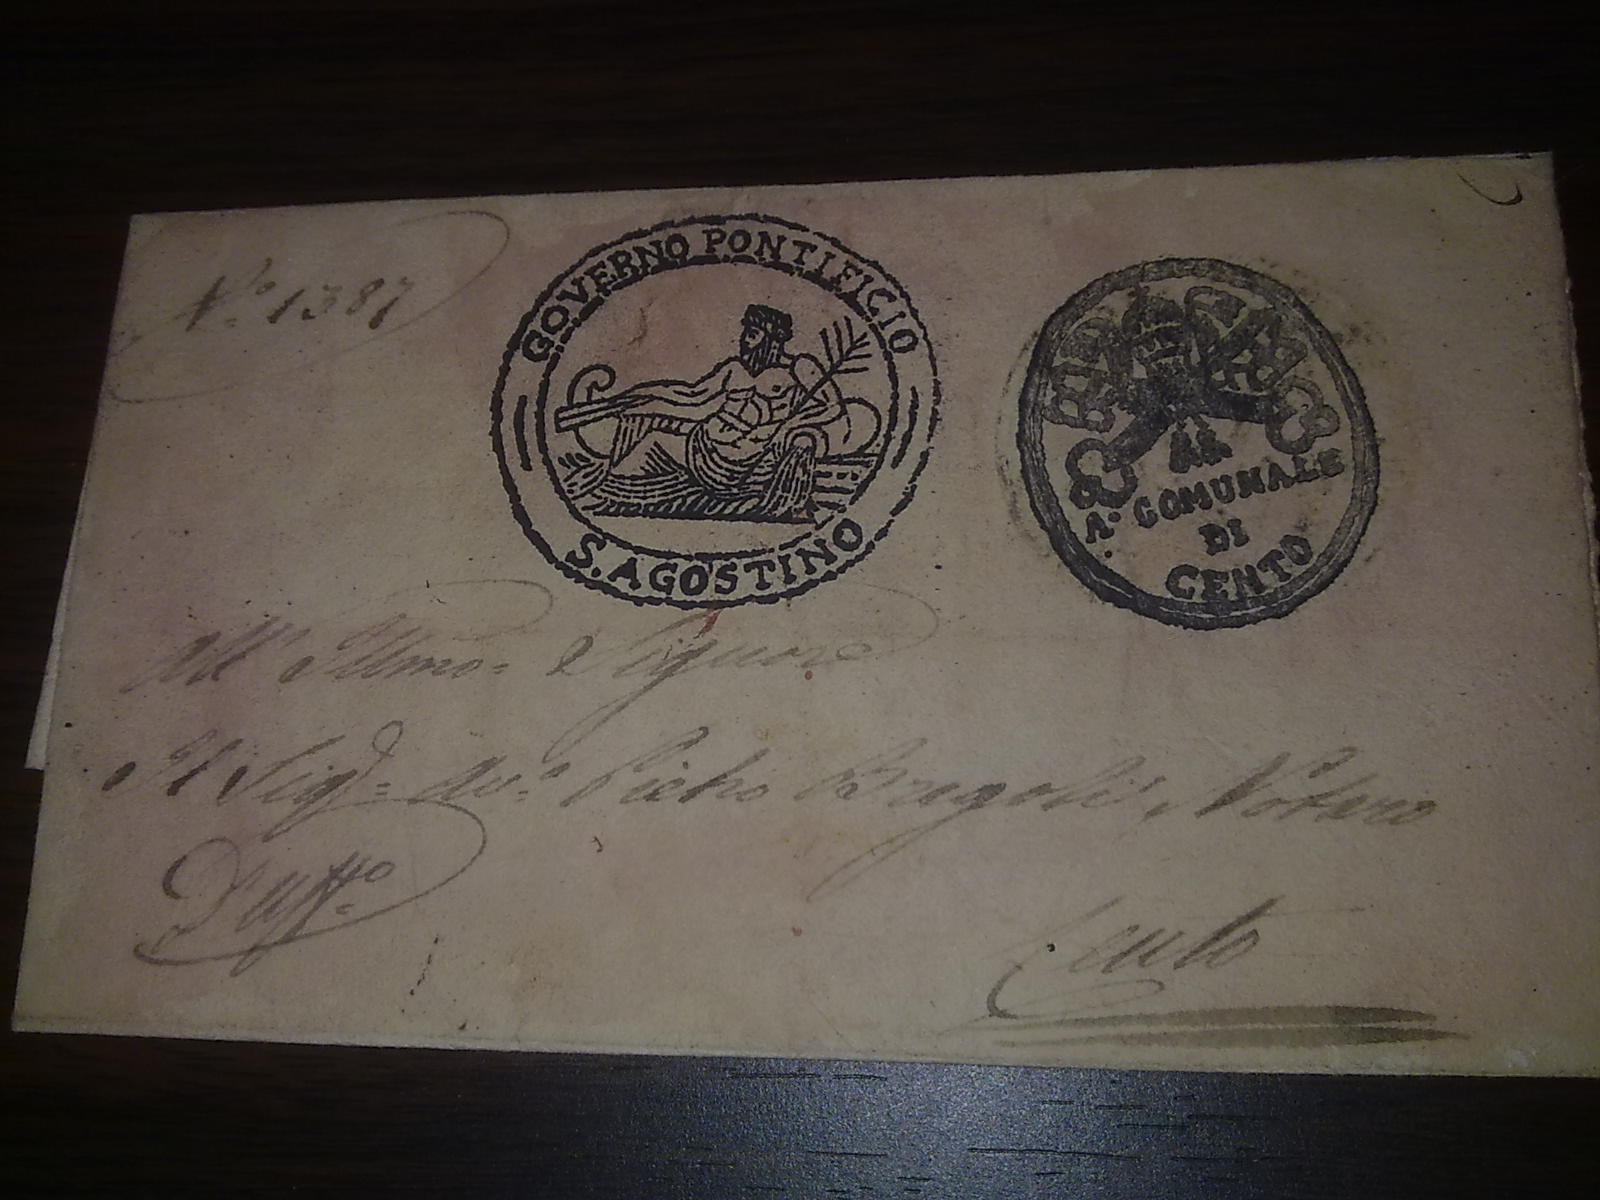 N.o 1387
GOVERNO PONTIFICIO
S. AGOSTINO
A.a COMUNALE
DI
CENTO
All' Illmo. Signore
Il Sig.r Av.o Pietro Notaro
D'uff.o
Cento